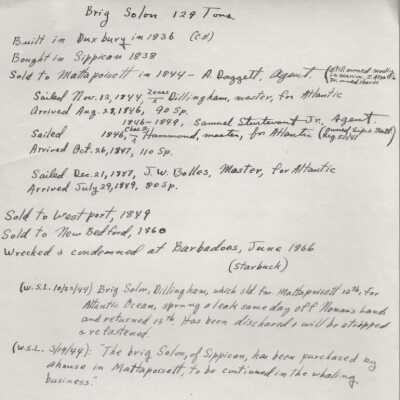 Brig Solon 129 Tons
Built in Duxbury in 1836 (Cd)
Bought in Sippican 1838
Sold to Mattapoisett in 1844 - A. Daggett, Agent. (still owned mostly in
Sailed Nov. 12, 1844, Dillingham, master, for Atlantic
Arrived Aug. 28, 1846, 90 Sp.
1846-1849, Samuel Sturtevant Jr. Agent.
Sailed 1846, Hammond, master, for Atlantic (owned
Arrived Oct. 26, 1847, 110 Sp.
Sailed Dec. 21, 1847, J. W. Bolles, Master, for Atlantic
Arrived July 29, 1849, 80 Sp.
Sold to Westport, 1849
Sold to New Bedford, 1860
Wrecked & condemned at Barbadoes, June 1866
(Starbuck)
(W.S.L. 10/22/44) Brig Solon, Dillingham, which sld for Mattapoisett 12th, for
Atlantic Ocean, sprung a leak same day off Nomans hands
and returned 15th. Has been dischard & will be stripped
& refastened.
(W.S.L. 3/19/44): "The brig Solon, of Sippican, has been purchased by
a house in Mattapoisett, to be continued in the whaling
business."